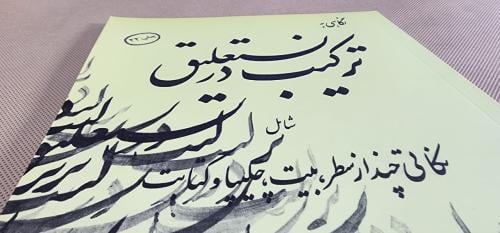 نگاهی به
ترکیب در نستعلیق
شامل
نکاتی چند از سطر، بیت، چلیپا و کتابت